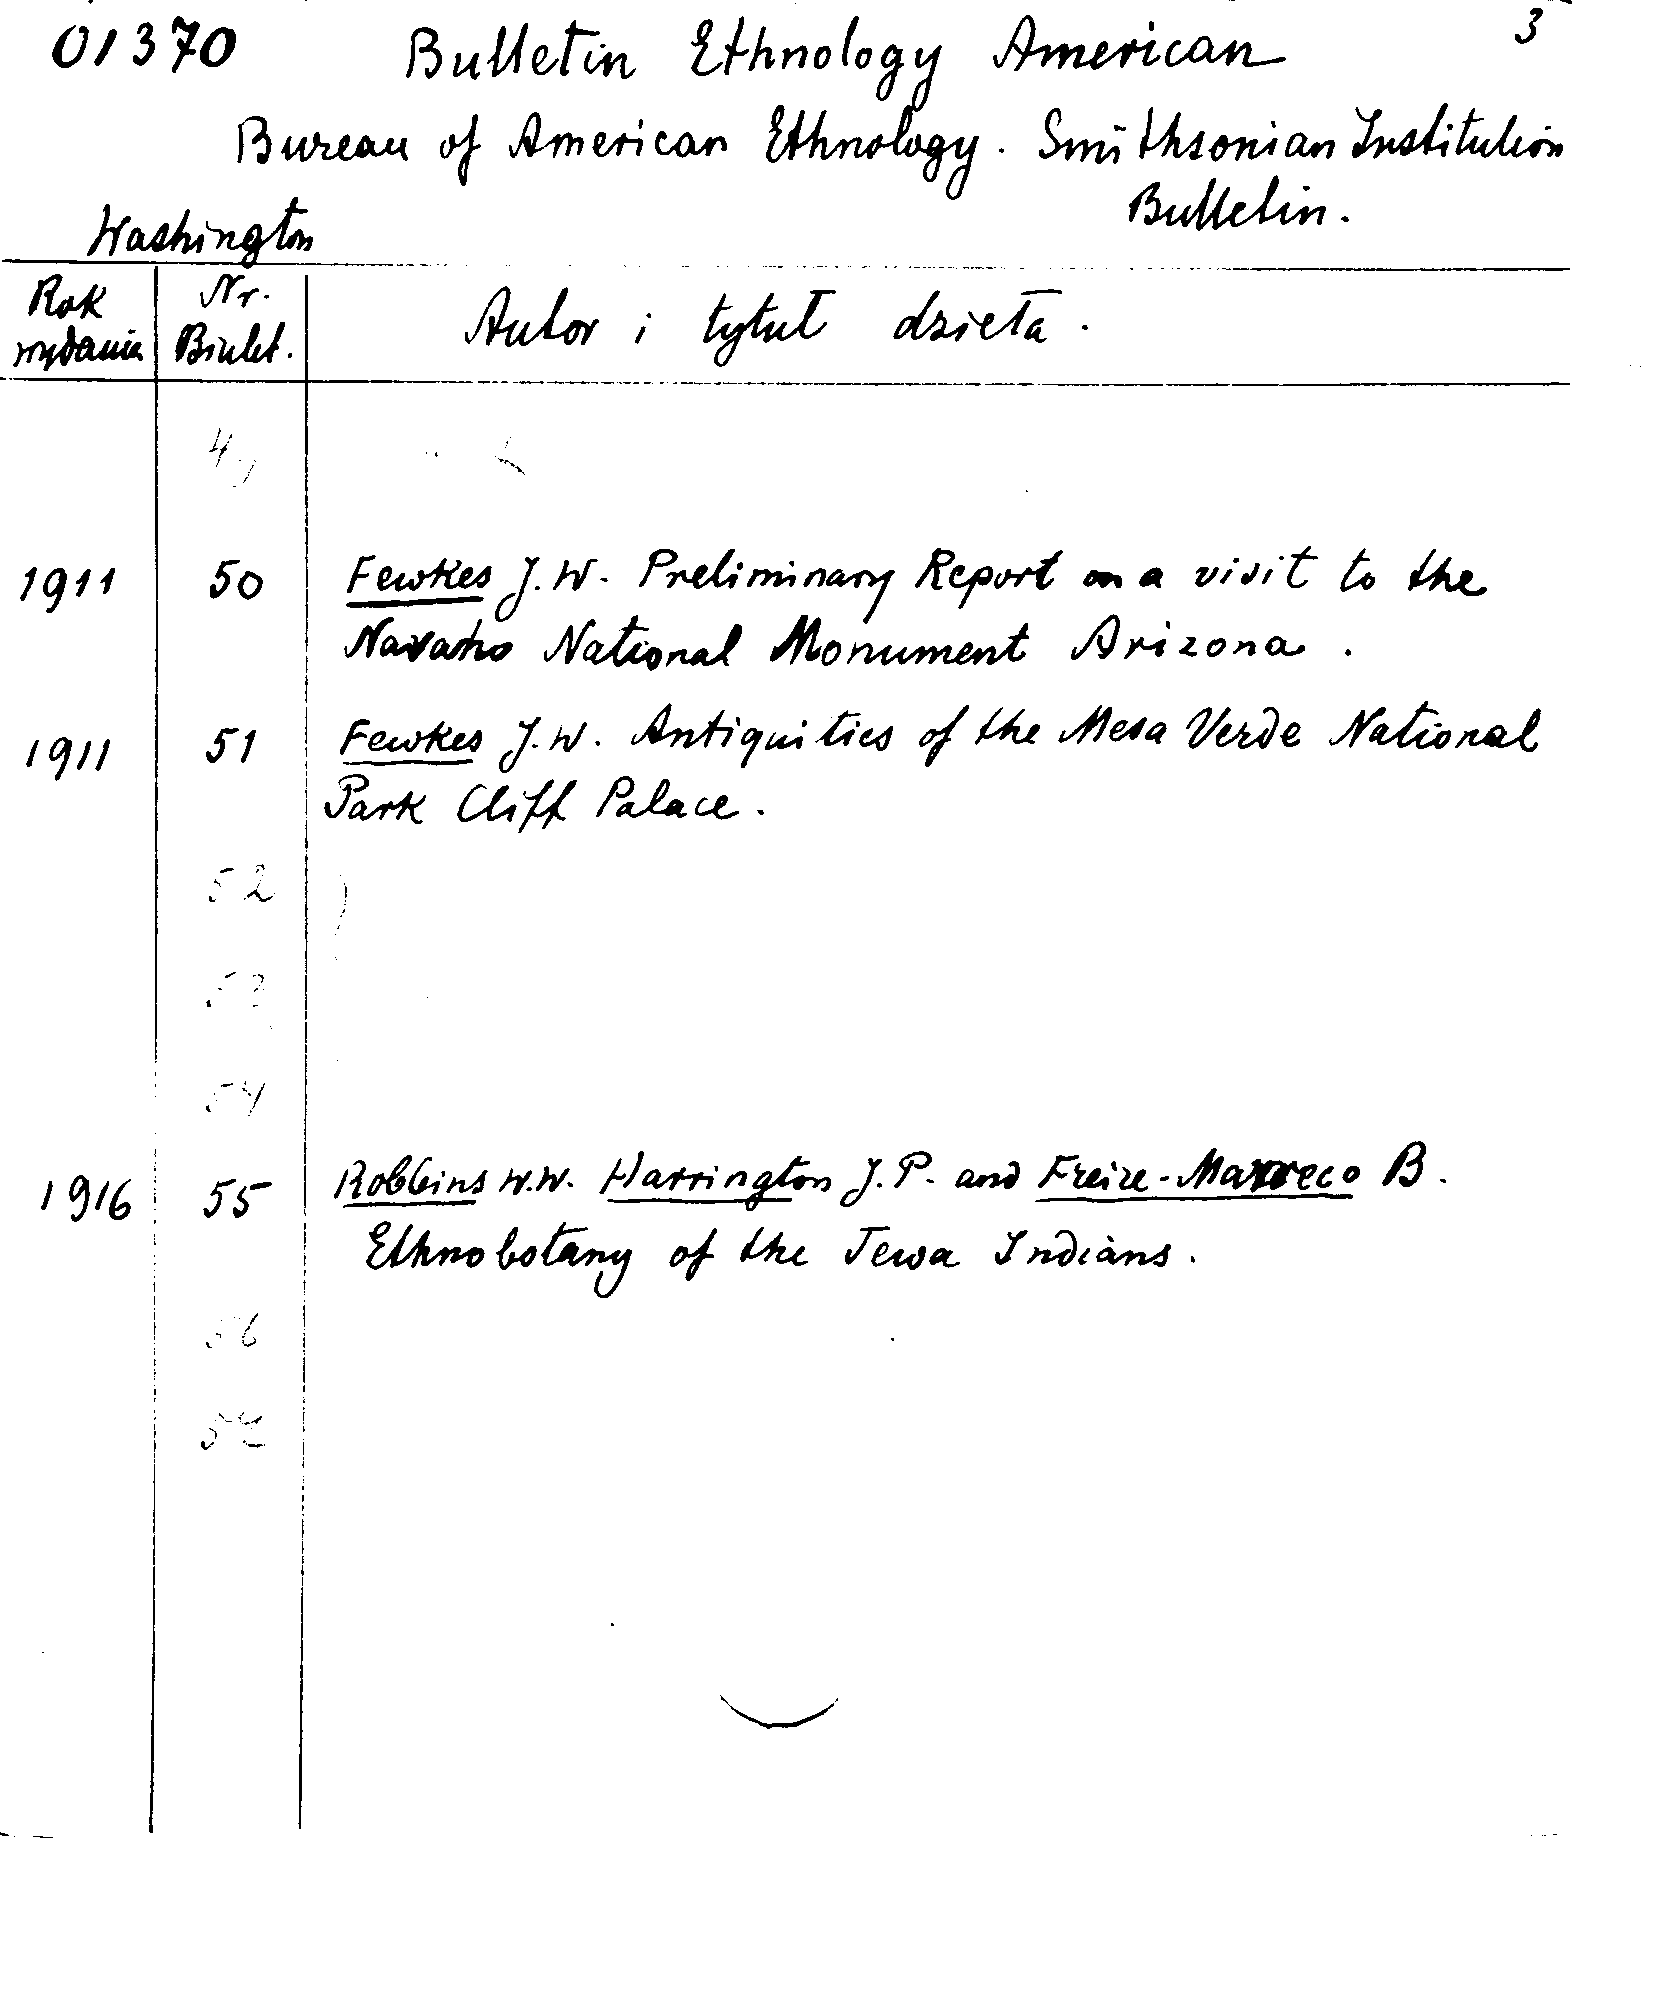 01370 Bulletin Ethnology American 3
Bureau of American Ethnology. Smithsonian Institution
Bulletin.
Washington
Rok wydania Nr. Biulet. Autor i tytuł dzieła.
1911 50 Fewkes J.W. Preliminary Report on a visit to the
Navaho National Monument Arizona.
1911 51 Fewkes J.W. Antiquities of the Mesa Verde National
Park Cliff Palace.
52
53
54
1916 55 Robbins W.W. Harrington J.P. and Freire-Marreco B.
Ethnobotany of the Tewa Indians.
56
57